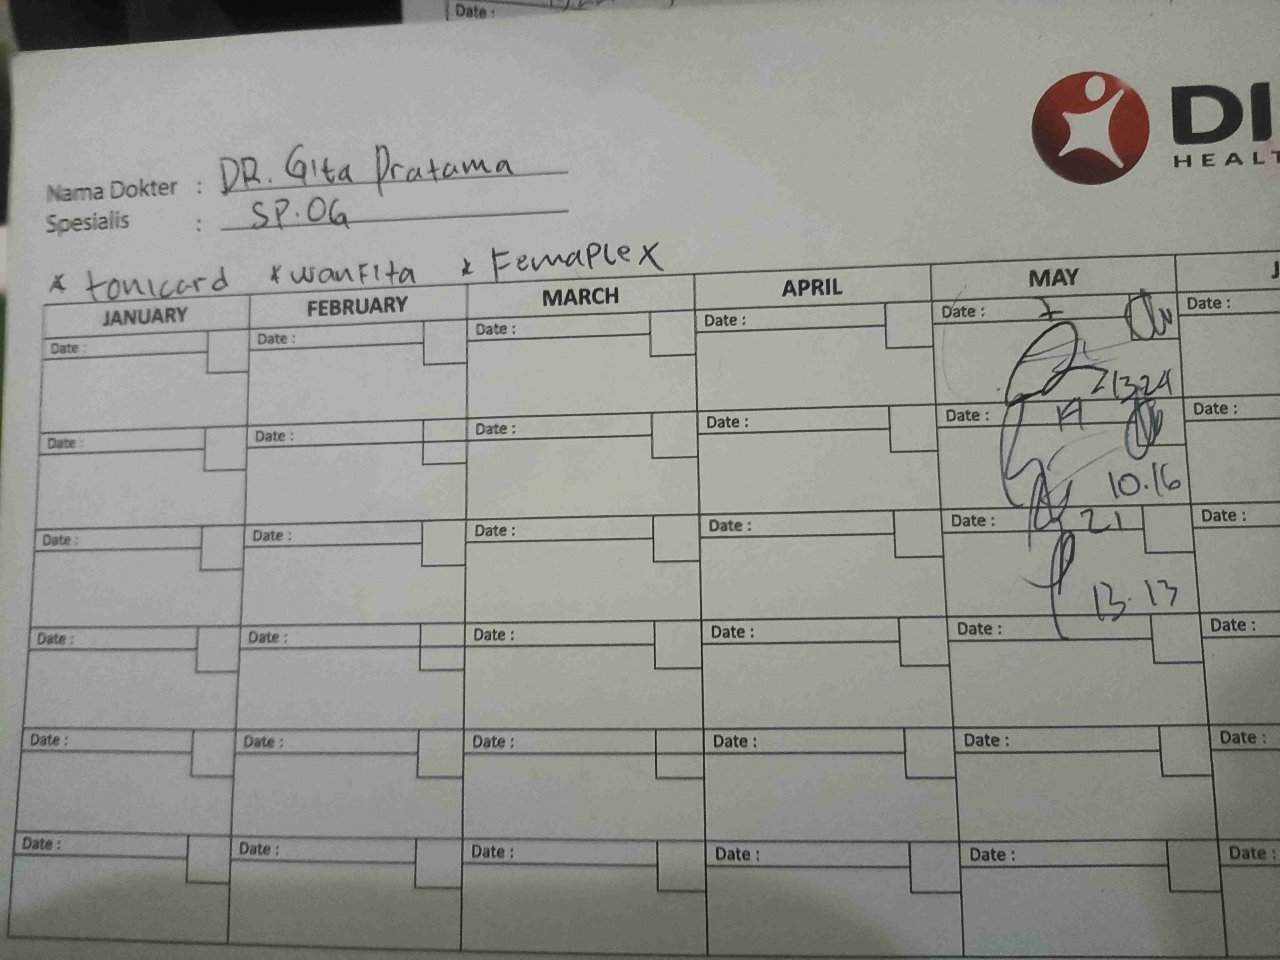 Date :
DI
HEALT
Nama Dokter : DR. Gita Pratama
Spesialis : SP.OG
* tonicard * wanFita * FemaPleX
JANUARY FEBRUARY MARCH APRIL MAY J
Date : Date : Date : Date : Date : 7 Date :
13.24
Date : Date : Date : Date : Date : 19 Date :
10.16
Date : Date : Date : Date : Date : 21 Date :
13.13
Date : Date : Date : Date : Date : Date :
Date : Date : Date : Date : Date : Date :
Date : Date : Date : Date : Date : Date :